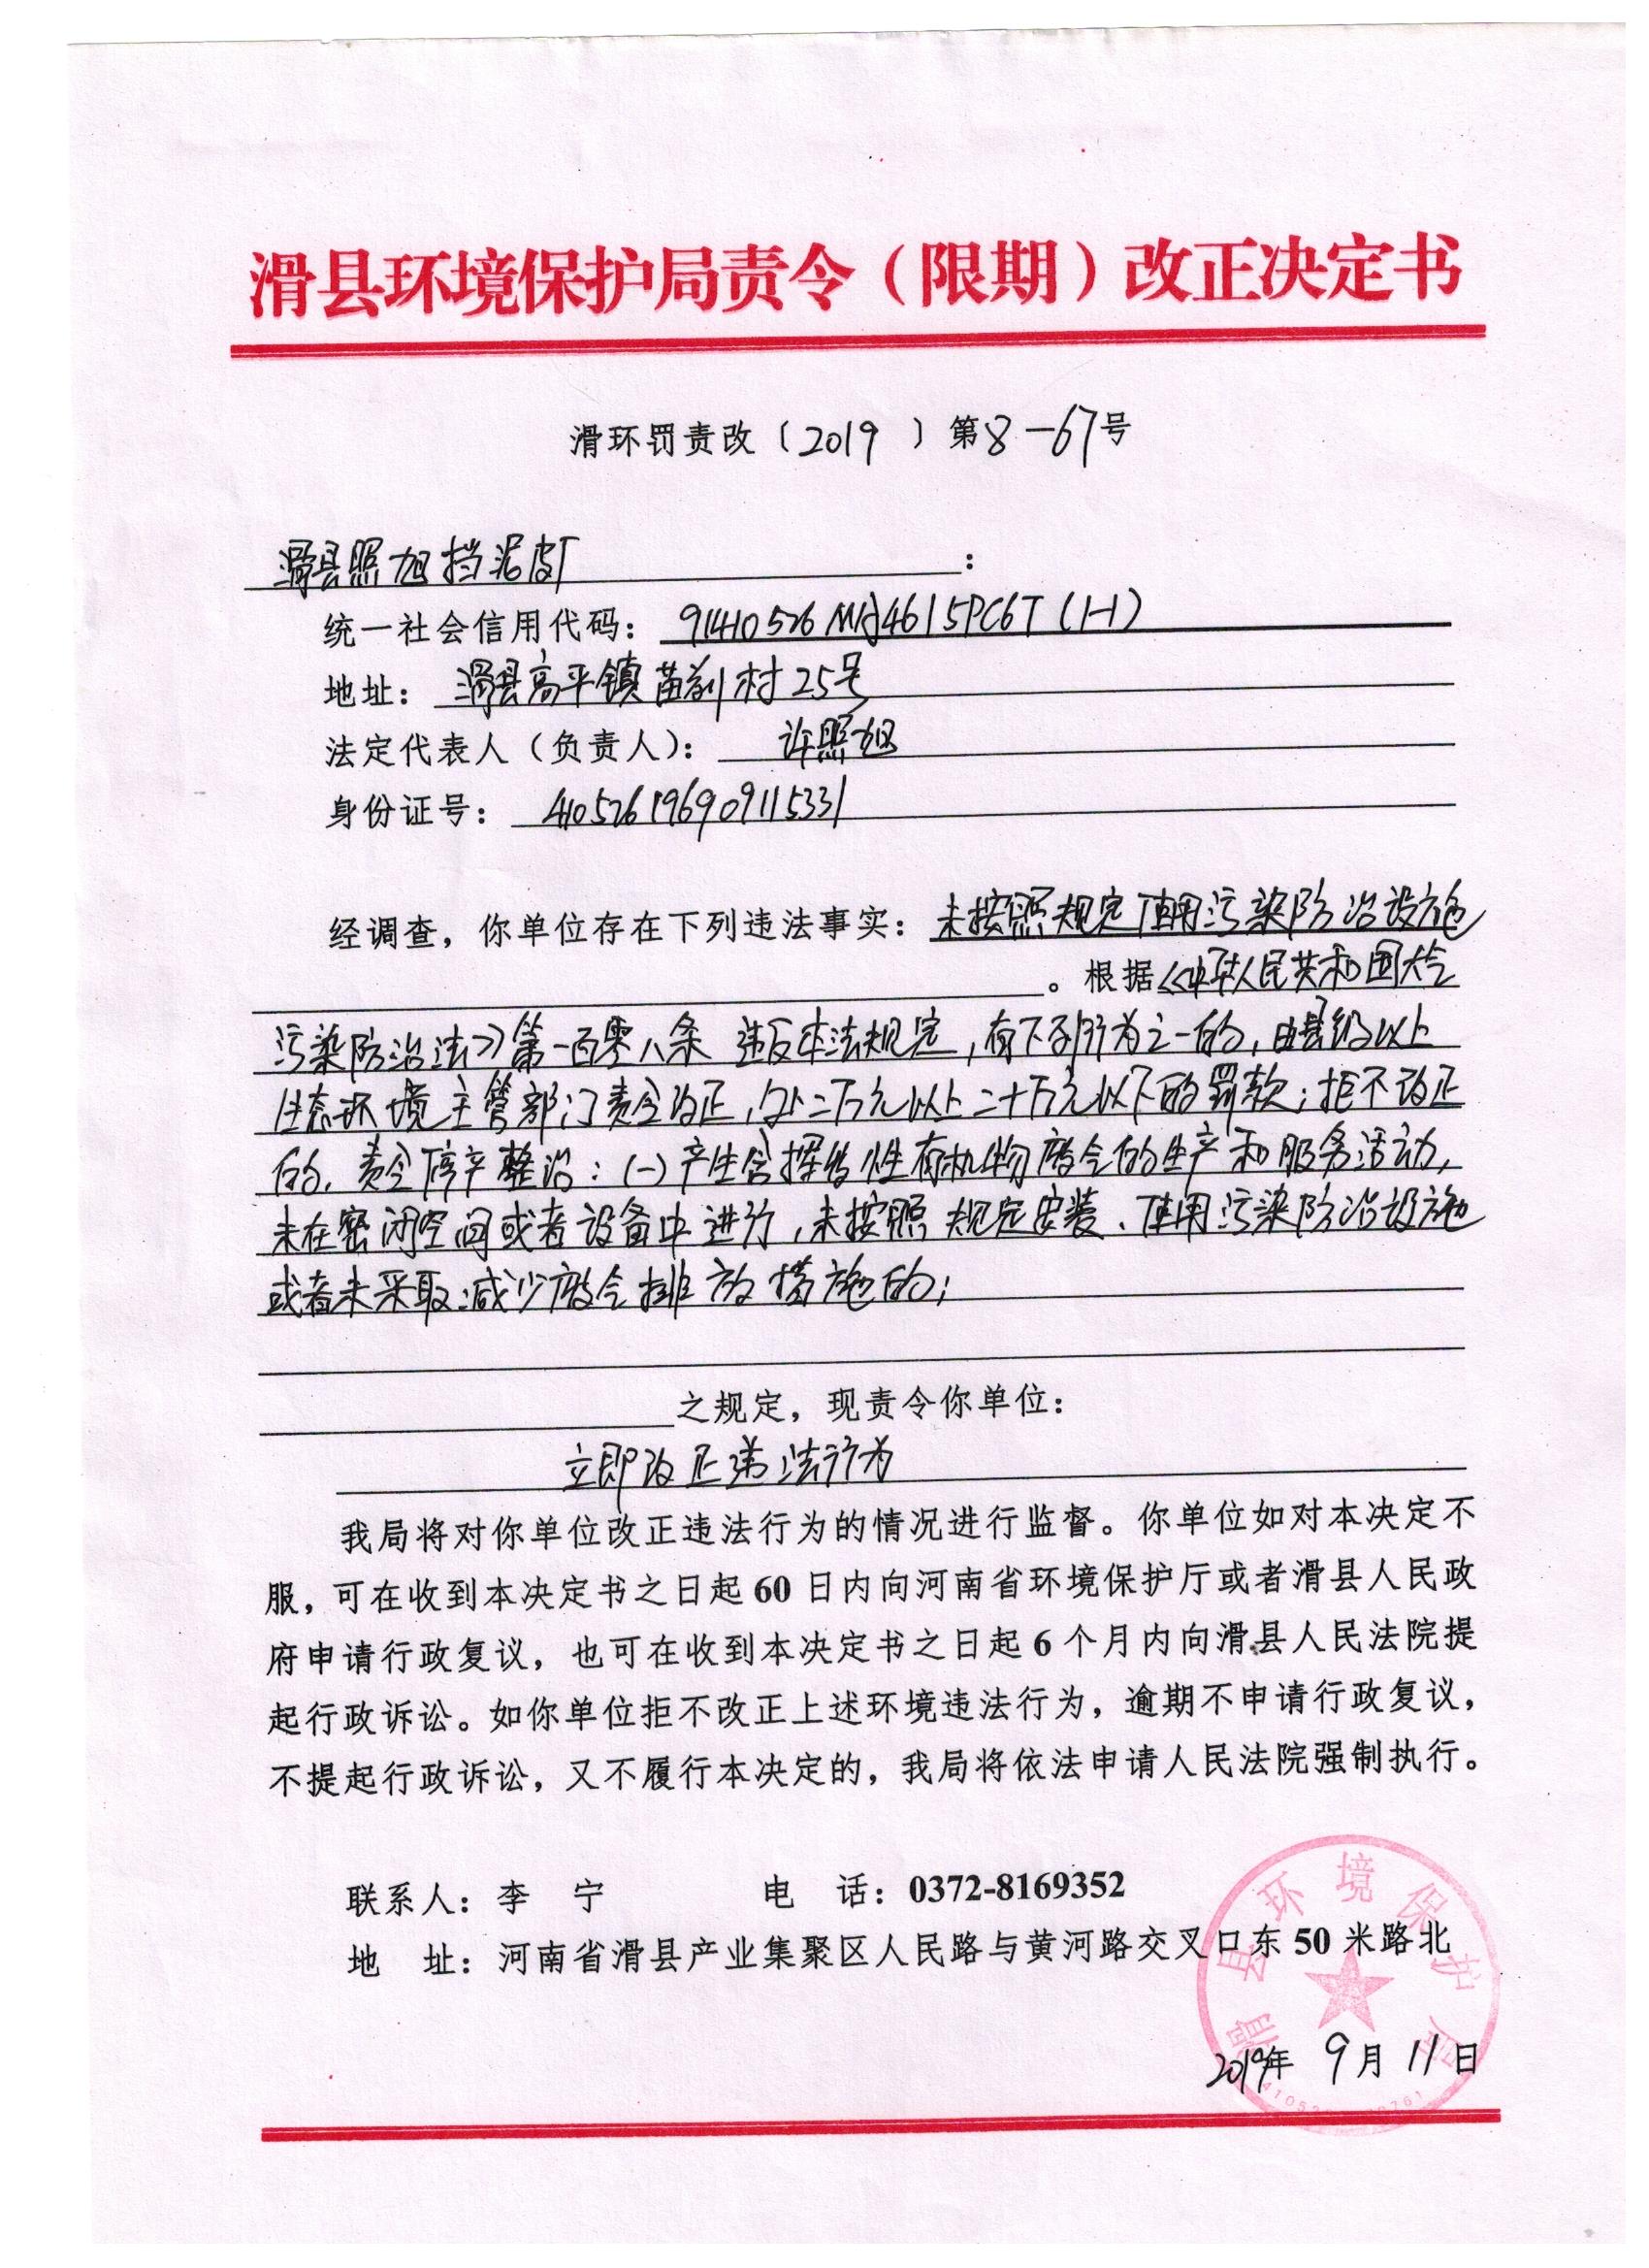 滑县环境保护局责令（限期）改正决定书
滑环罚责改〔2019 〕第8-67号
滑县照旭挡泥皮厂：
统一社会信用代码：91410526MA4615PC6T(1-1)
地址：滑县高平镇苗刘村25号
法定代表人（负责人）：许照旭
身份证号：410526196909115331
经调查，你单位存在下列违法事实：未按照规定使用污染防治设施
。根据《中华人民共和国大气
污染防治法》第一百零八条 违反本法规定，有下列行为之一的，由县级以上
生态环境主管部门责令改正，处二万元以上二十万元以下的罚款；拒不改正
的，责令停产整治：(一)产生含挥发性有机物废气的生产和服务活动，
未在密闭空间或者设备中进行，未按照规定安装、使用污染防治设施
或者未采取减少废气排放措施的；
之规定，现责令你单位：
立即改正违法行为
我局将对你单位改正违法行为的情况进行监督。你单位如对本决定不
服，可在收到本决定书之日起60日内向河南省环境保护厅或者滑县人民政
府申请行政复议，也可在收到本决定书之日起6个月内向滑县人民法院提
起行政诉讼。如你单位拒不改正上述环境违法行为，逾期不申请行政复议，
不提起行政诉讼，又不履行本决定的，我局将依法申请人民法院强制执行。
联系人：李 宁 电 话：0372-8169352
地 址：河南省滑县产业集聚区人民路与黄河路交叉口东50米路北
滑县环境保护局
2019年 9月 11日